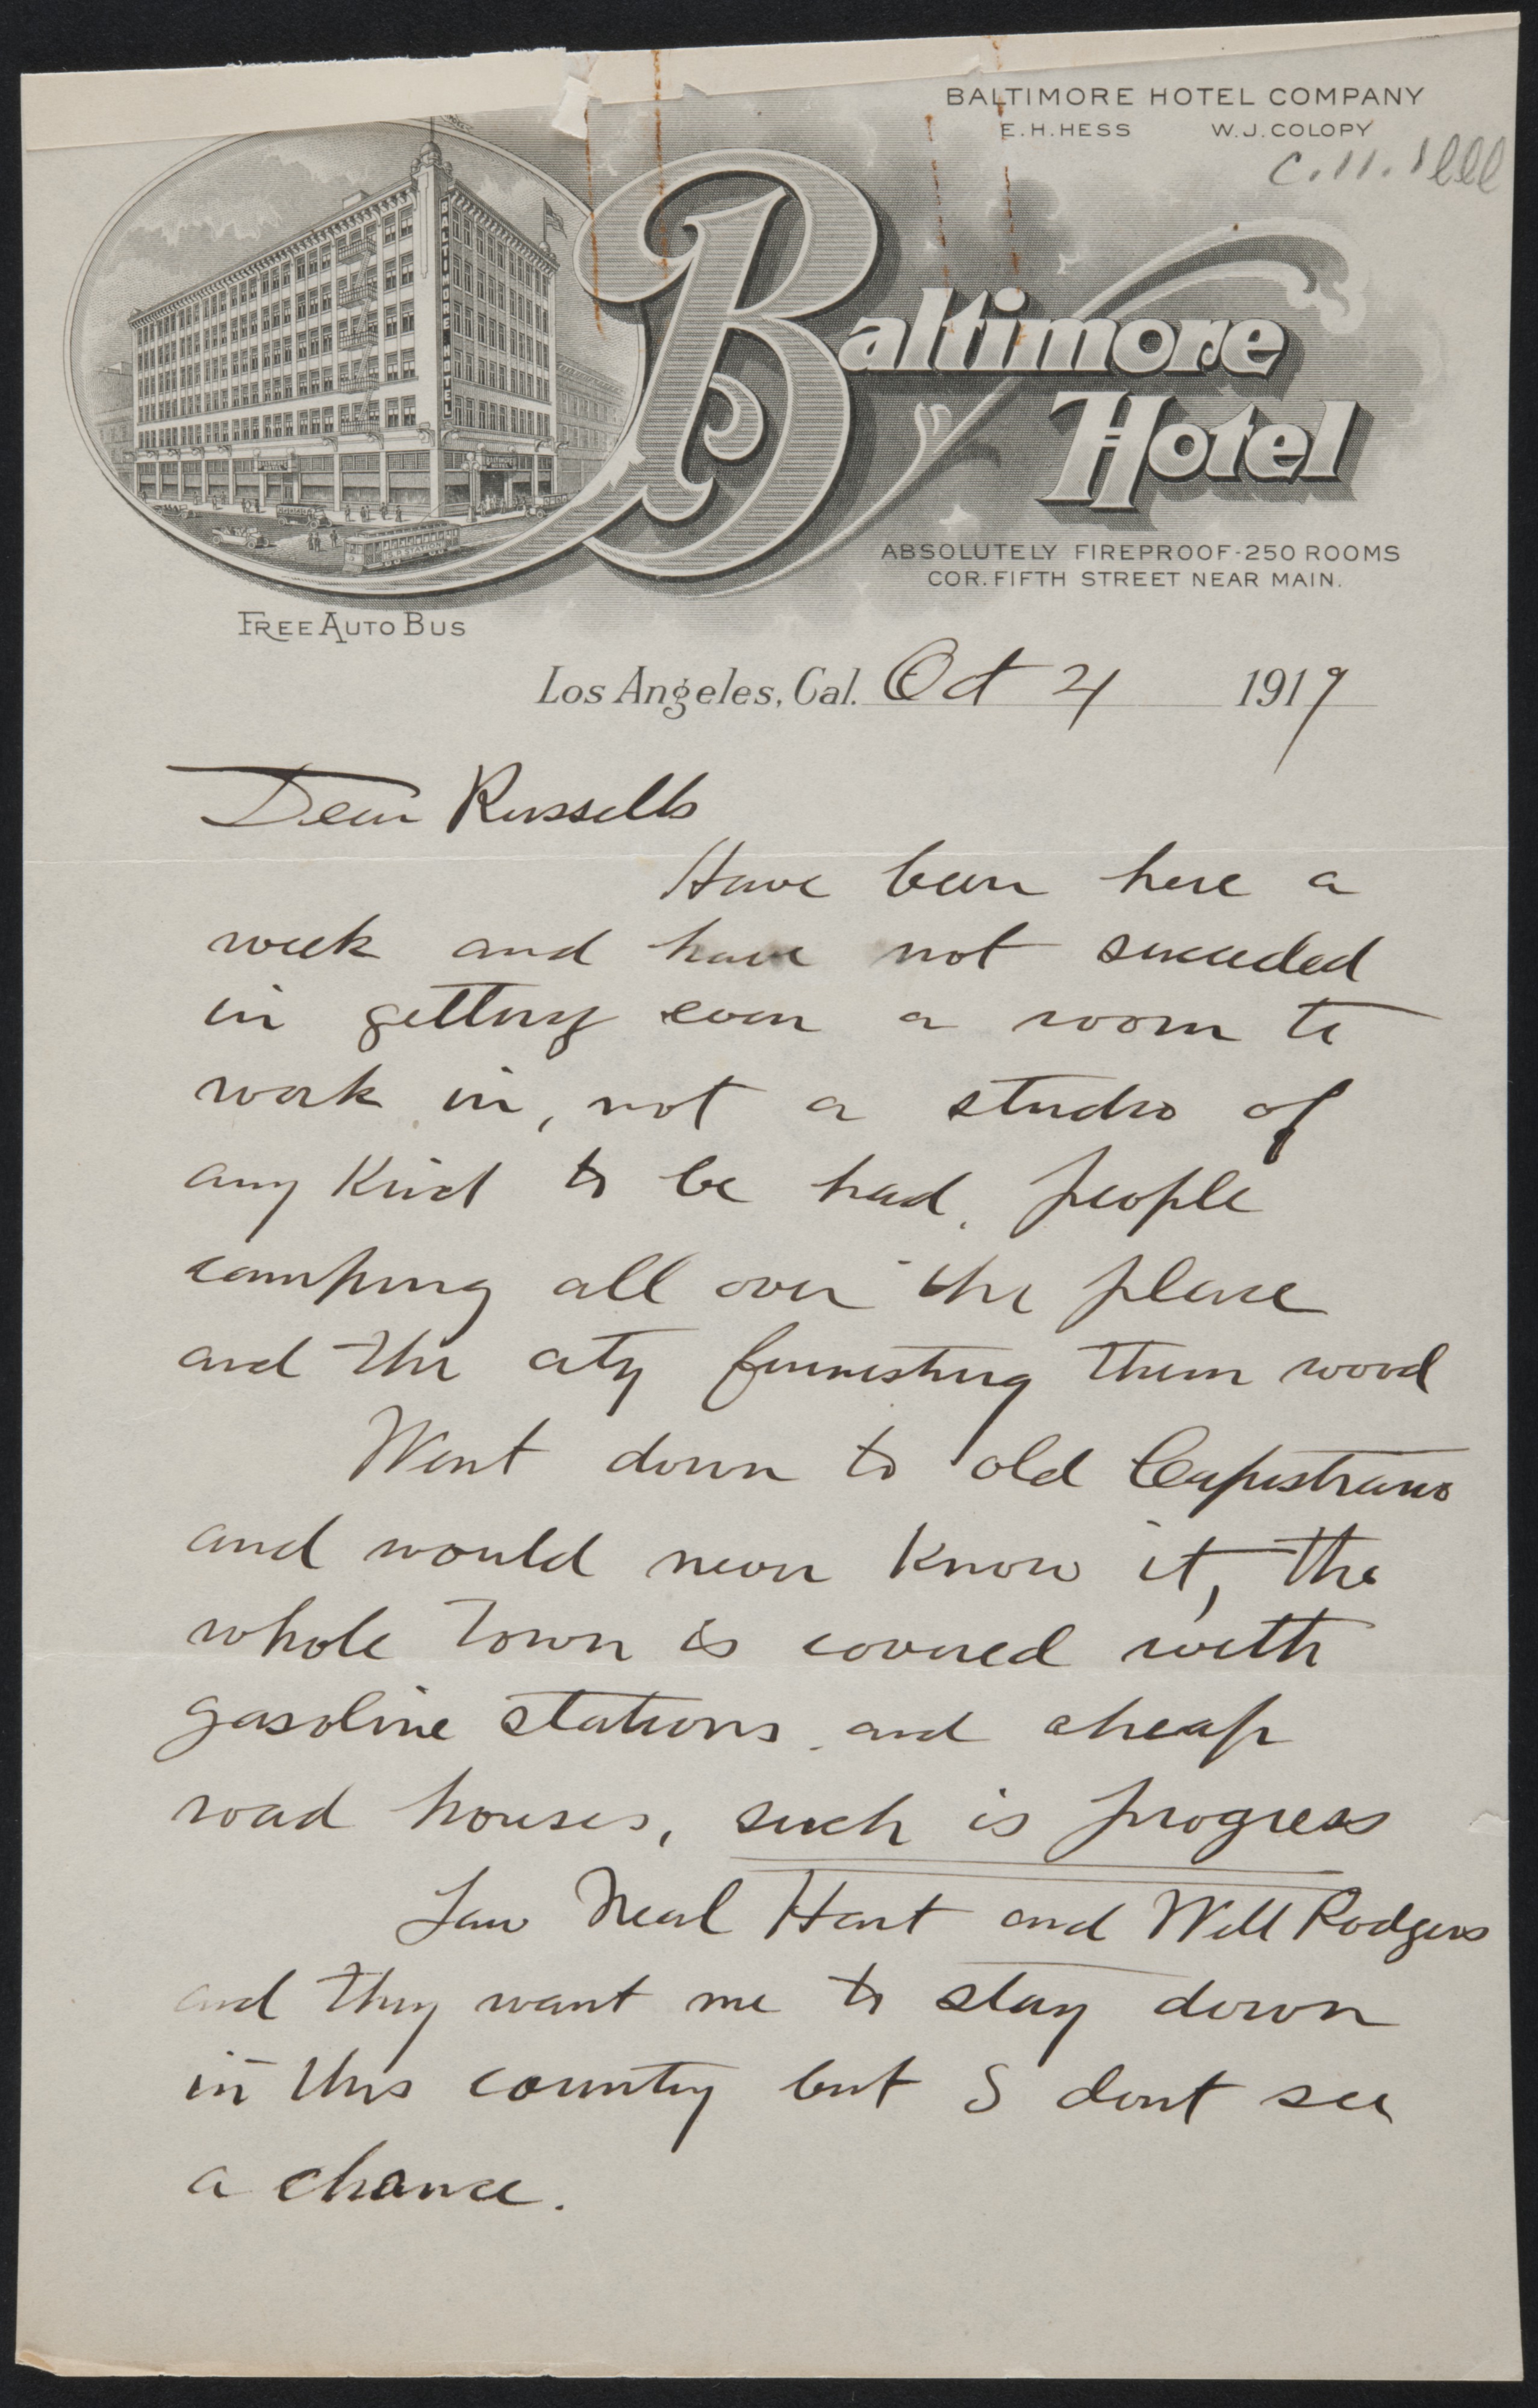 BALTIMORE HOTEL COMPANY
E.H.HESS W.J.COLOPY
BALTIMORE HOTEL
Baltimore
Hotel
ABSOLUTELY FIREPROOF-250 ROOMS
COR. FIFTH STREET NEAR MAIN.
FREE AUTO BUS
Los Angeles, Cal. Oct 4 1919
Dear Russells
Have been here a
week and have not succeeded
in getting even a room to
work in, not a studio of
any kind to be had. people
camping all over the place
and the city furnishing them wood
Went down to old Capistrano
and would never know it, the
whole town is covered with
gasoline stations and cheap
road houses, such is progress
Saw Neal Hart and Will Rodgers
and they want me to stay down
in this country but I dont see
a chance.